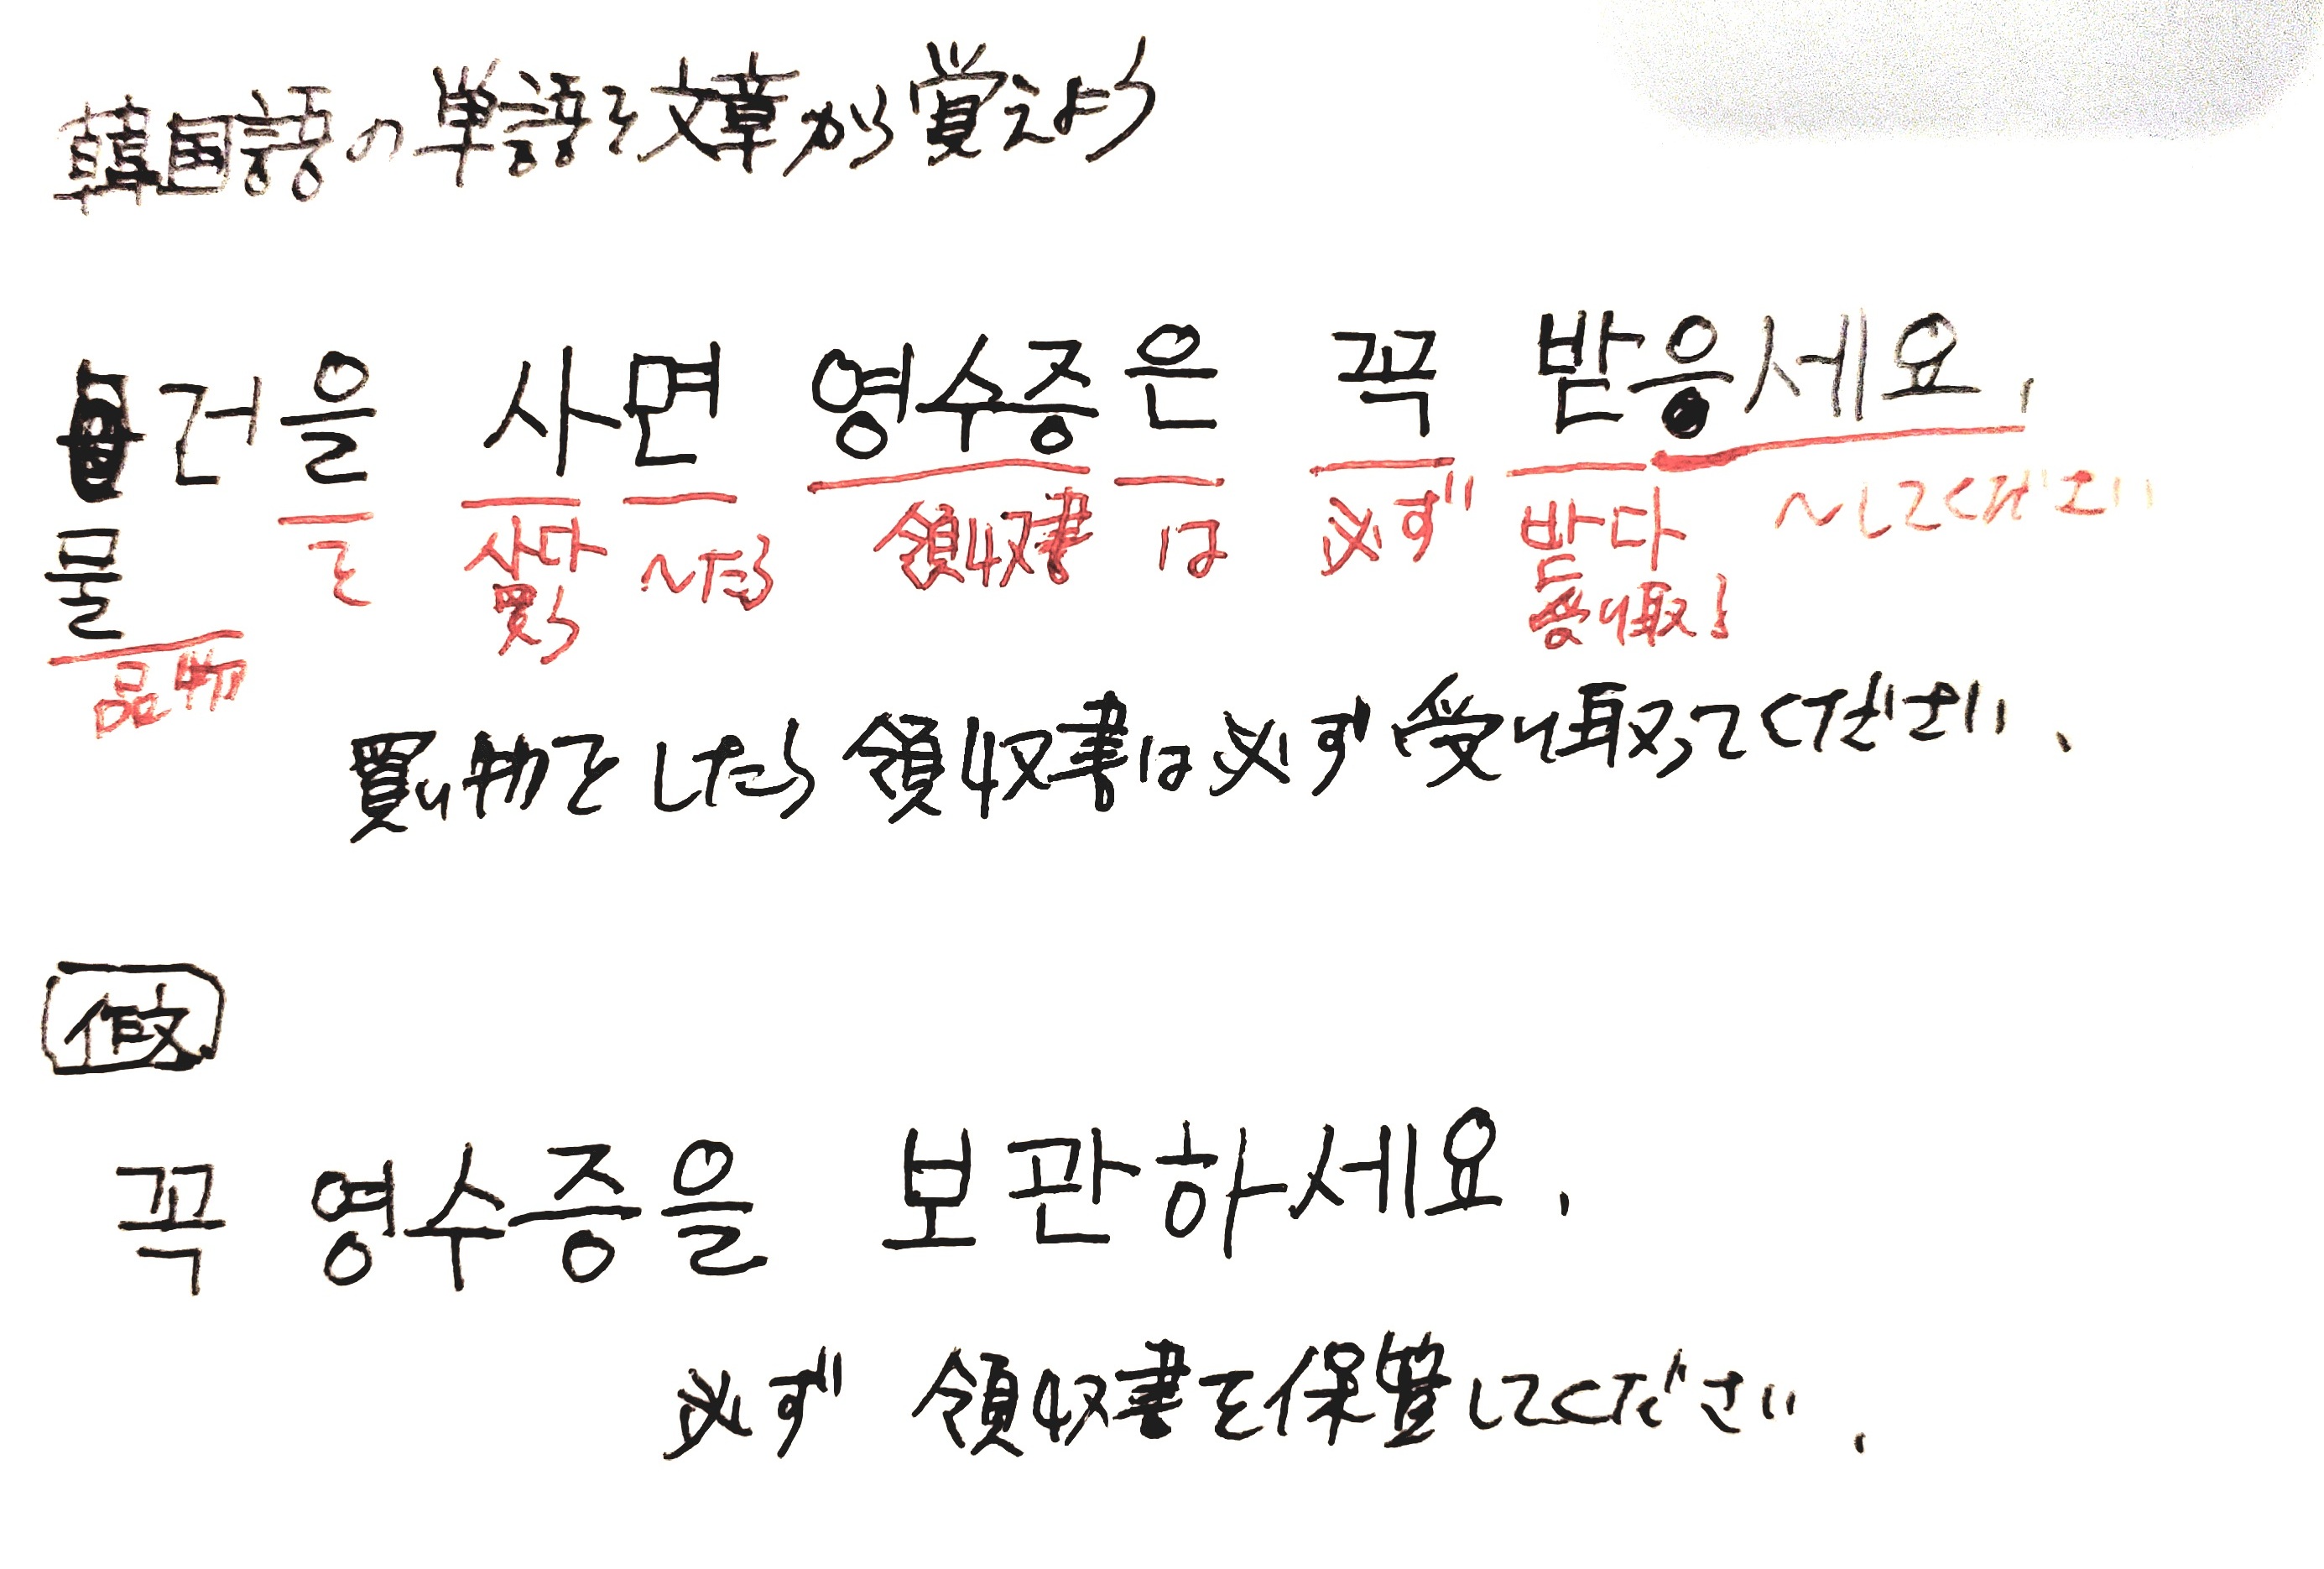 韓国語の単語を文章から覚えよう
건을 사면 영수증은 꼭 받으세요.
물
品物 を 사다 ~たら 領収書 は 必ず 받다 ~してください
買う 受け取る
買い物をしたら領収書は必ず受け取ってください、
作文
꼭 영수증을 보관하세요.
必ず 領収書を保管してください.